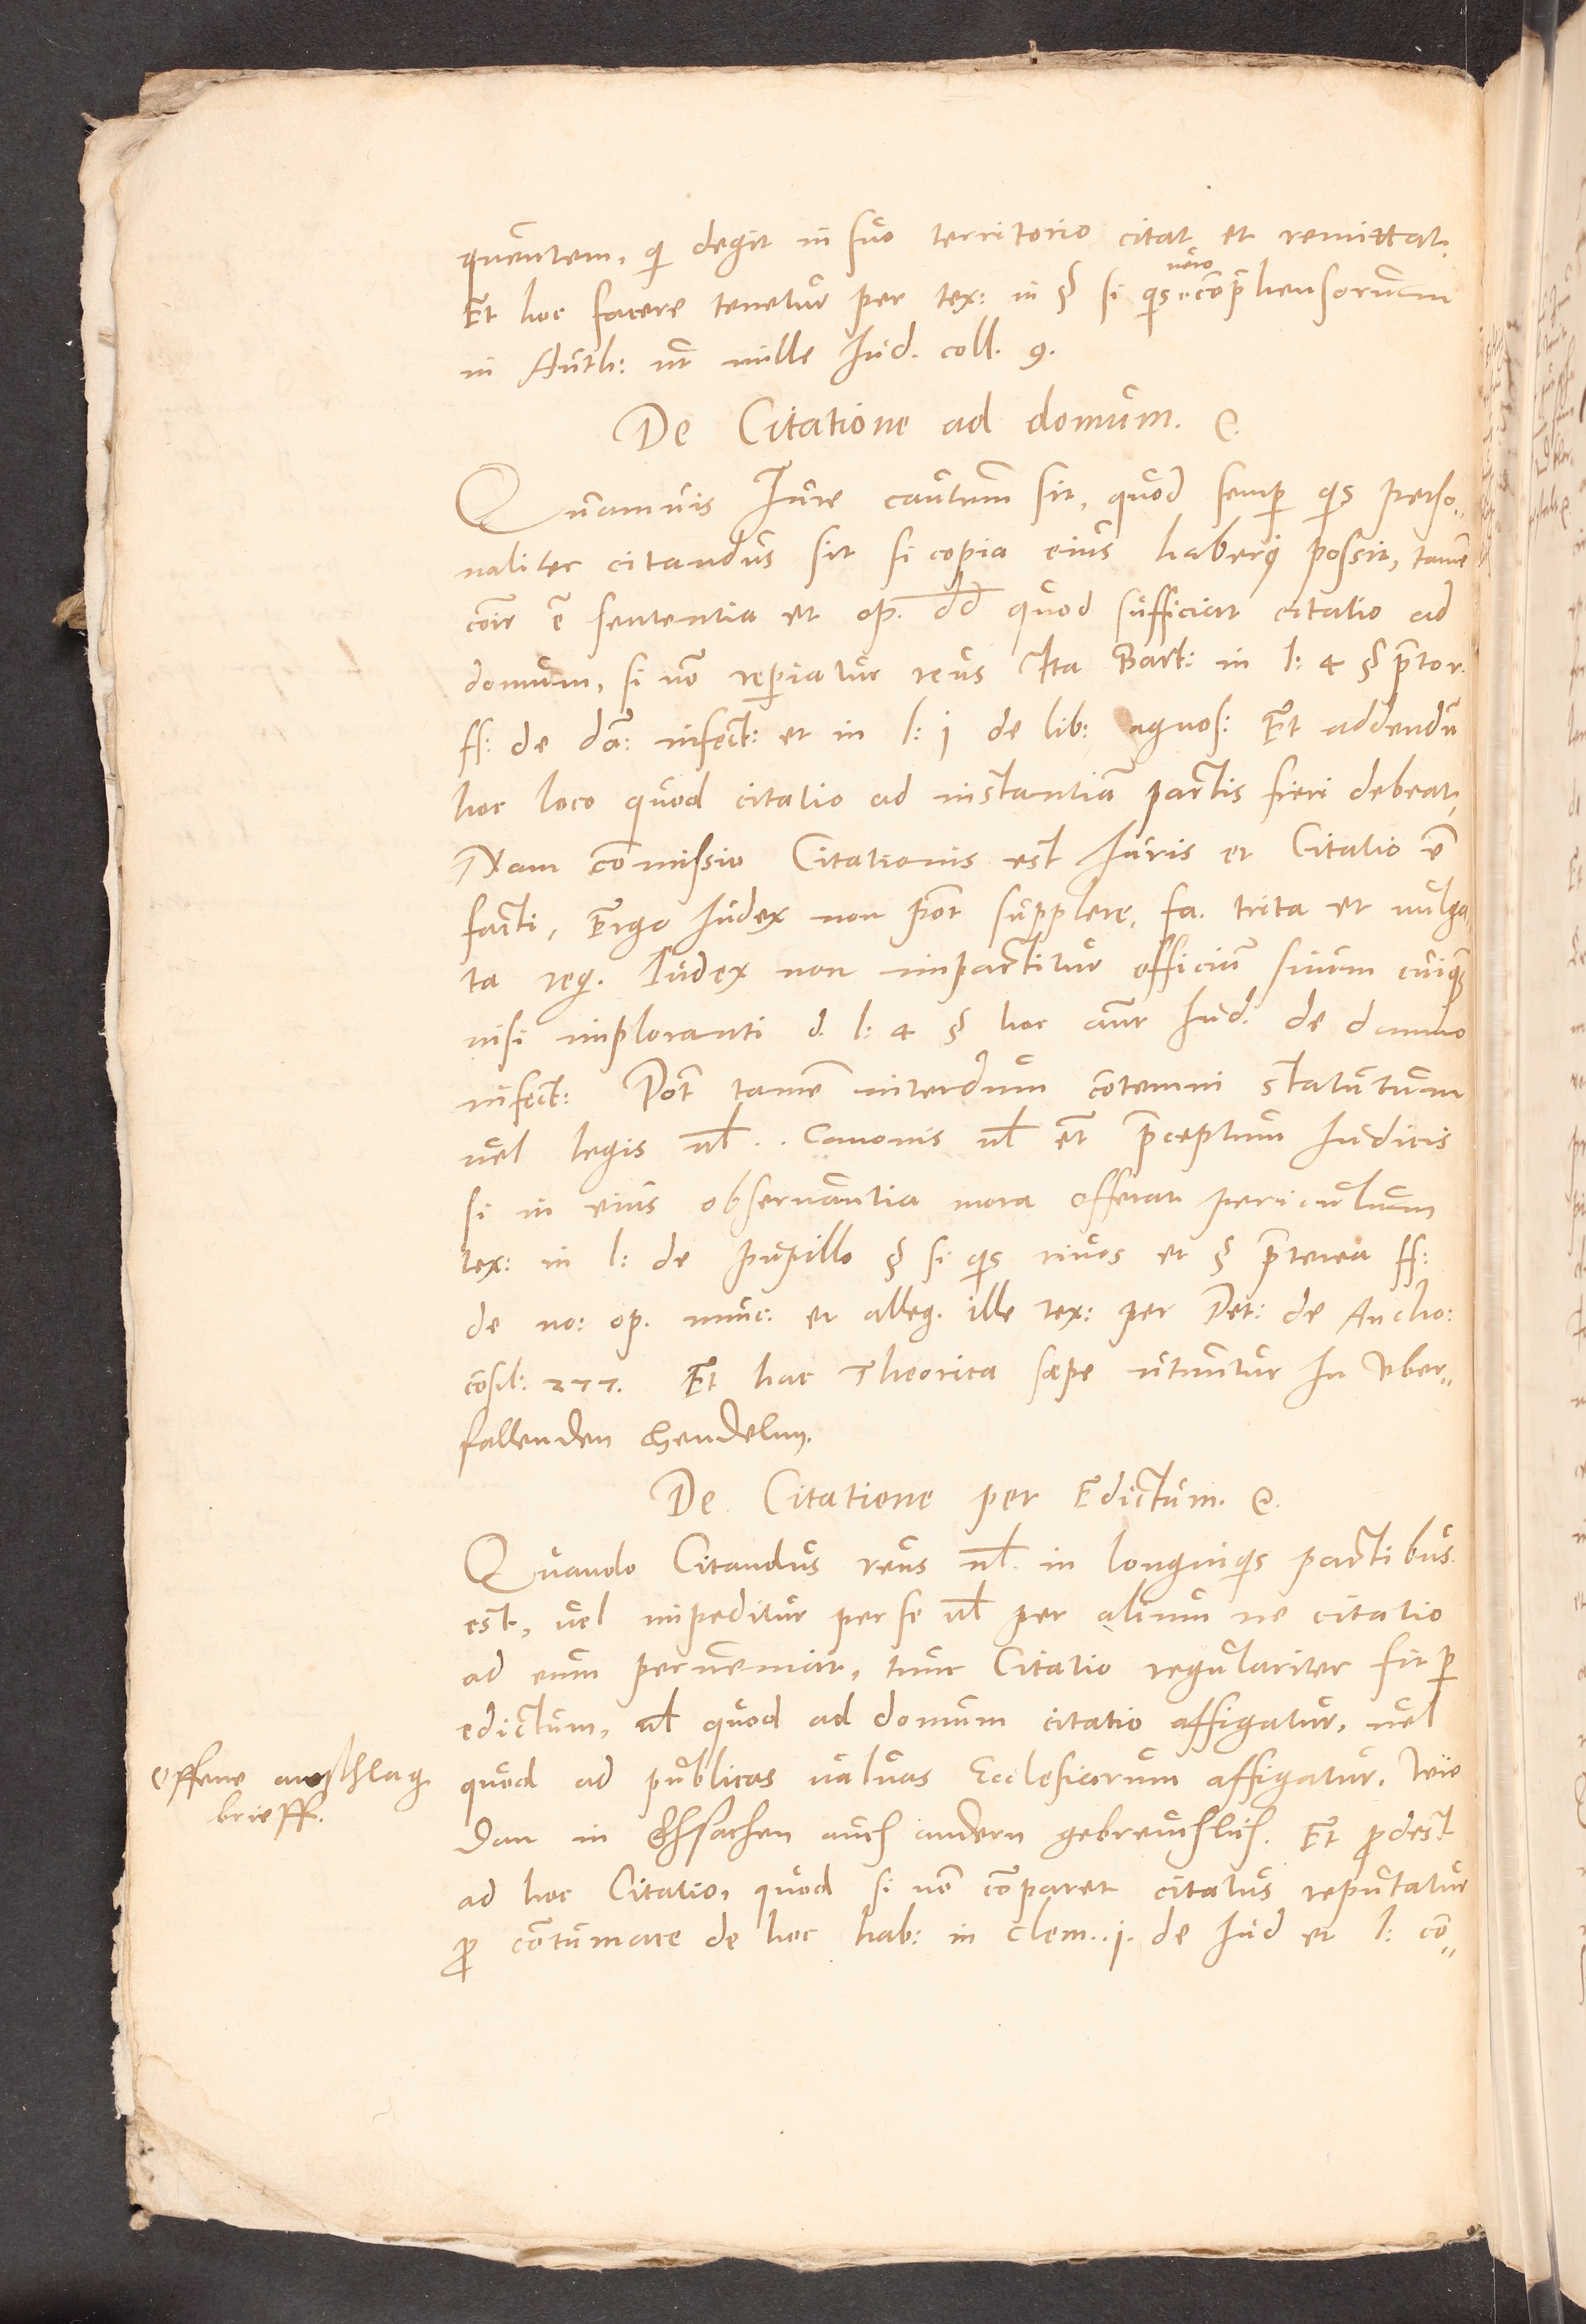 quentem, qi degit in suo territorio citat, et remittat.
Et hoc facere tenetur per tex: in § si qis vero comprehensorum
in Auth: ut nulle Iud. coll. 9.
De Citatione ad domum. &.
Quamuis Iure cautum sit, quod semp qis perso„
naliter citandus sit si copia eius haberi possit, tame
coir e sententia et op. dd quod sufficiat citatio ad
domum, si no reperiatur reus Ita Bart: in l: 4 § prtor.
ff: de da: infect: et in l: 1 de lib: agnos: Et addendu
hoc loco quod citatio ad instantia partis fieri debeat,
Nam comissio Citationis est Iuris et Citatio e
facti, Ergo Iudex non pot supplere, fa. trita et uulga„
ta reg. Iudex non impartitur officiu suum cuiq
nisi imploranti d. l: 4 § hoc autr Iud. de damno
infect: Pot tame interdum cotemni statutum
uel legis ul.. Canonis ul et preceptum Iudicis
si in eius obseruantia mora offerat periculum
tex: in l: de pupillo § si qis riuos et § preterea ff:
de no: op. nunc: et alleg. ille tex: per Pet: de Ancho:
cosil: 277. Et hac Theorica sæpe utuntur In Vber„
fallenden Hendeln.
De Citatione per Edictum. &.
Quando Citandus reus ul. in longinqis partibus
est, uel impeditur per se ul per alium ne citatio
ad eum perueniat, tunc Citatio regulariter fit p
edictum, ul quod ad domum citatio affigatur, uel
quod ad publicas ualuas Ecclesiarum affigatur. Wie
dan in Ehsachen auch andern gebreuchlich. Et prodest
ad hoc Citatio, quod si no comparet citatus reputatur
pro contumace de hoc hab: in Clem. 1. de Iud et l: co„
offene anschlag
brieff.